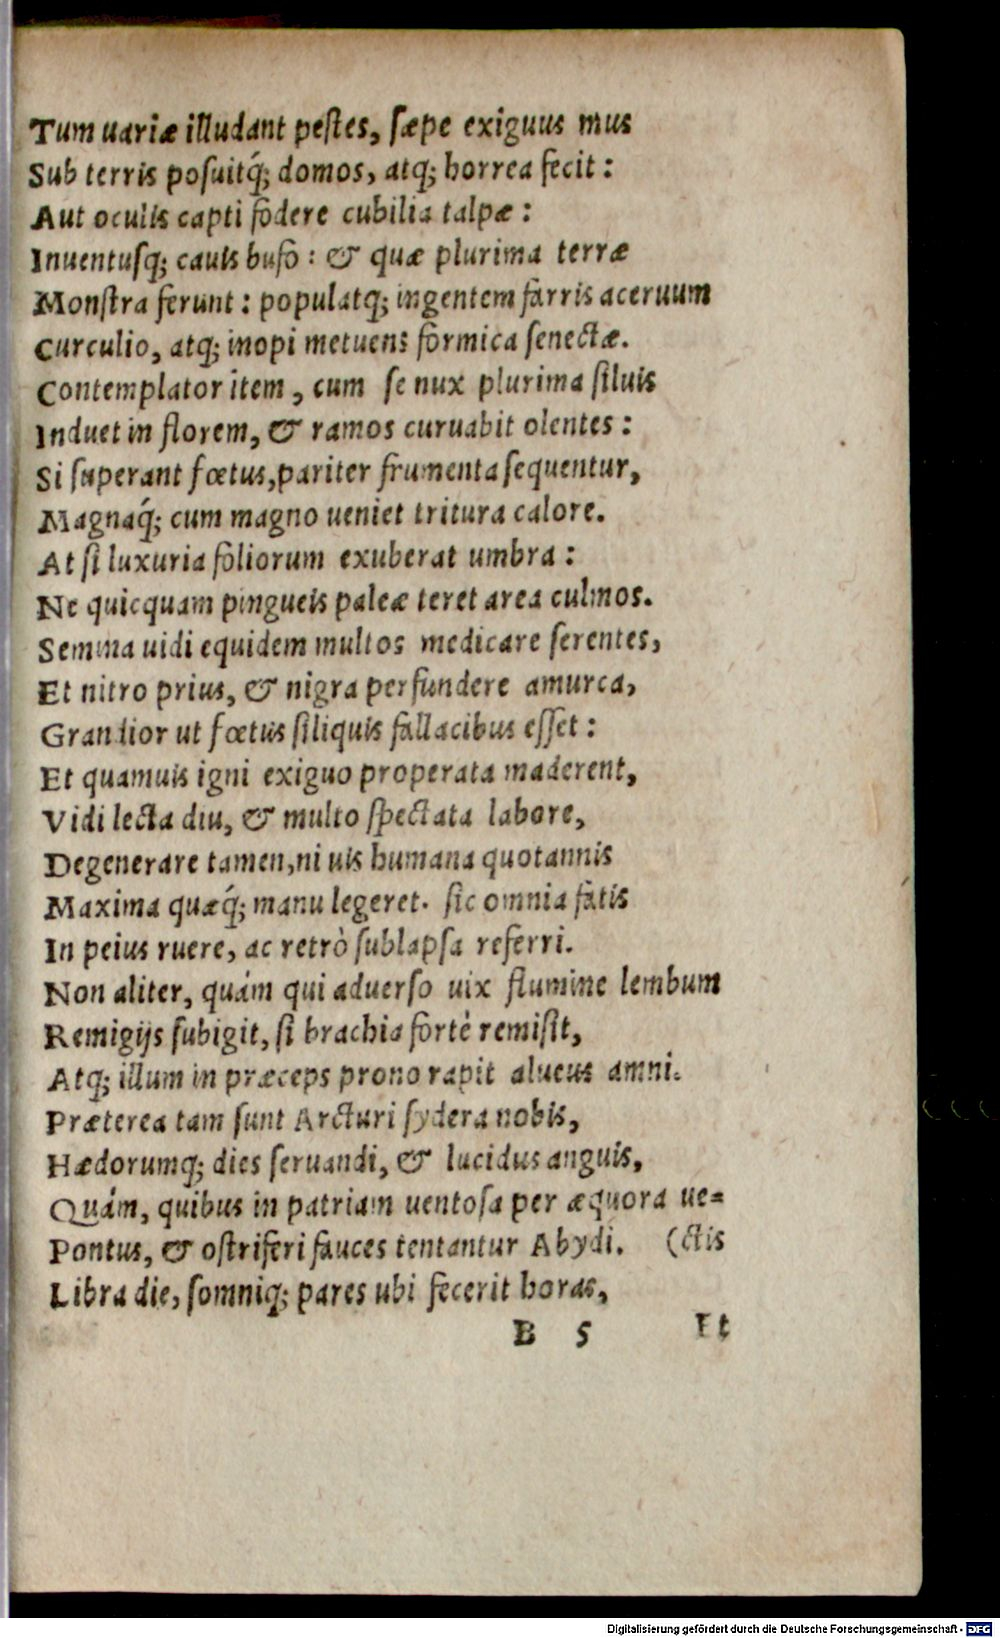 Tum uariæ illudant pestes, sæpe exiguus mus
Sub terris posuitq́; domos, atq; horrea fecit:
Aut oculis capti fodere cubilia talpæ:
Inuentusq; cauis bufo: & quæ plurima terræ
Monstra ferunt: populatq; ingentem farris aceruum
Curculio, atq; inopi metuens formica senectæ.
Contemplator item, cum se nux plurima siluis
Induet in florem, & ramos curuabit olentes:
Si superant fœtus, pariter frumenta sequentur,
Magnaq́; cum magno ueniet tritura calore.
At si luxuria foliorum exuberat umbra:
Ne quicquam pingueis paleæ teret area culmos.
Semina uidi equidem multos medicare serentes,
Et nitro prius, & nigra perfundere amurca,
Grandior ut fœtus siliquis fallacibus esset:
Et quamuis igni exiguo properata maderent,
Vidi lecta diu, & multo spectata labore,
Degenerare tamen, ni uis humana quotannis
Maxima quæq́; manu legeret. sic omnia fatis
In peius ruere, ac retrò sublapsa referri.
Non aliter, quám qui aduerso uix flumine lembum
Remigijs subigit, si brachia fortè remisit,
Atq; illum in præceps prono rapit alueus amni.
Præterea tam sunt Arcturi sydera nobis,
Hædorumq; dies seruandi, & lucidus anguis,
Quám, quibus in patriam uentosa per æquora ue=
Pontus, & ostriferi fauces tentantur Abydi. (ctis
Libra die, somniq; pares ubi fecerit horas,
B 5 Et
Digitalisierung gefördert durch die Deutsche Forschungsgemeinschaft - DFG